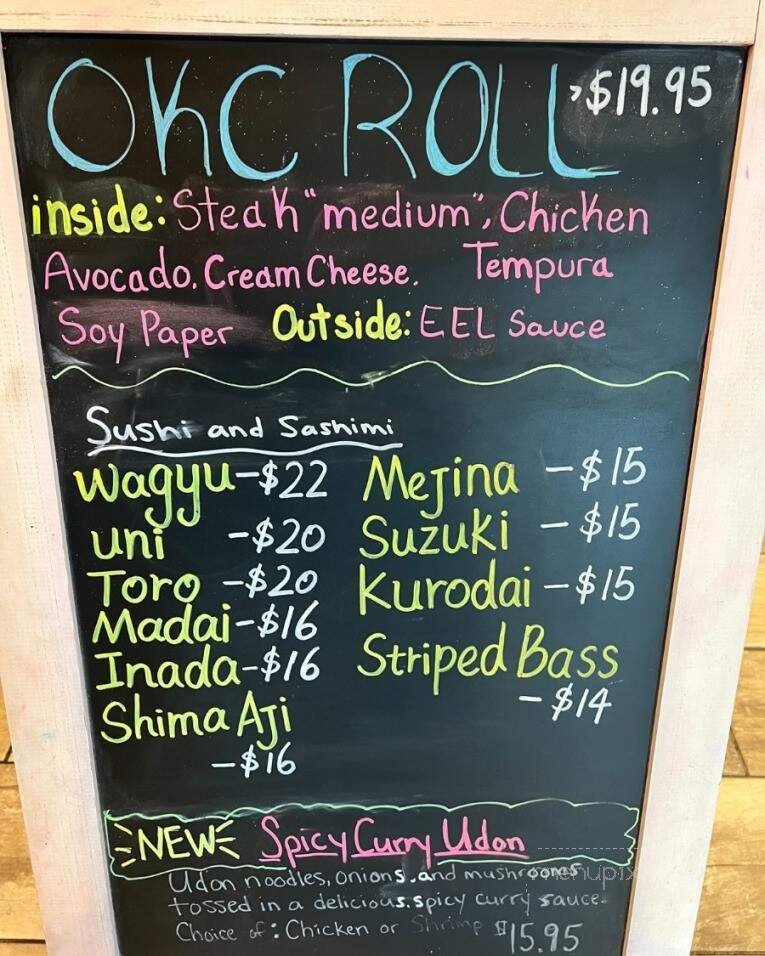 OKC ROLL >$19.95
inside: Steak "medium", Chicken
Avocado. Cream Cheese. Tempura
Soy Paper Outside: EEL Sauce
Sushi and Sashimi
Wagyu-$22 Mejina -$15
uni -$20 Suzuki -$15
Toro -$20 Kurodai -$15
Madai-$16
Inada-$16 Striped Bass
-$14
Shima Aji
-$16
NEW Spicy Curry Udon
Udon noodles, onions, and mushrooms
tossed in a delicious. spicy curry sauce.
Choice of: Chicken or Shrimp $15.95
menupix